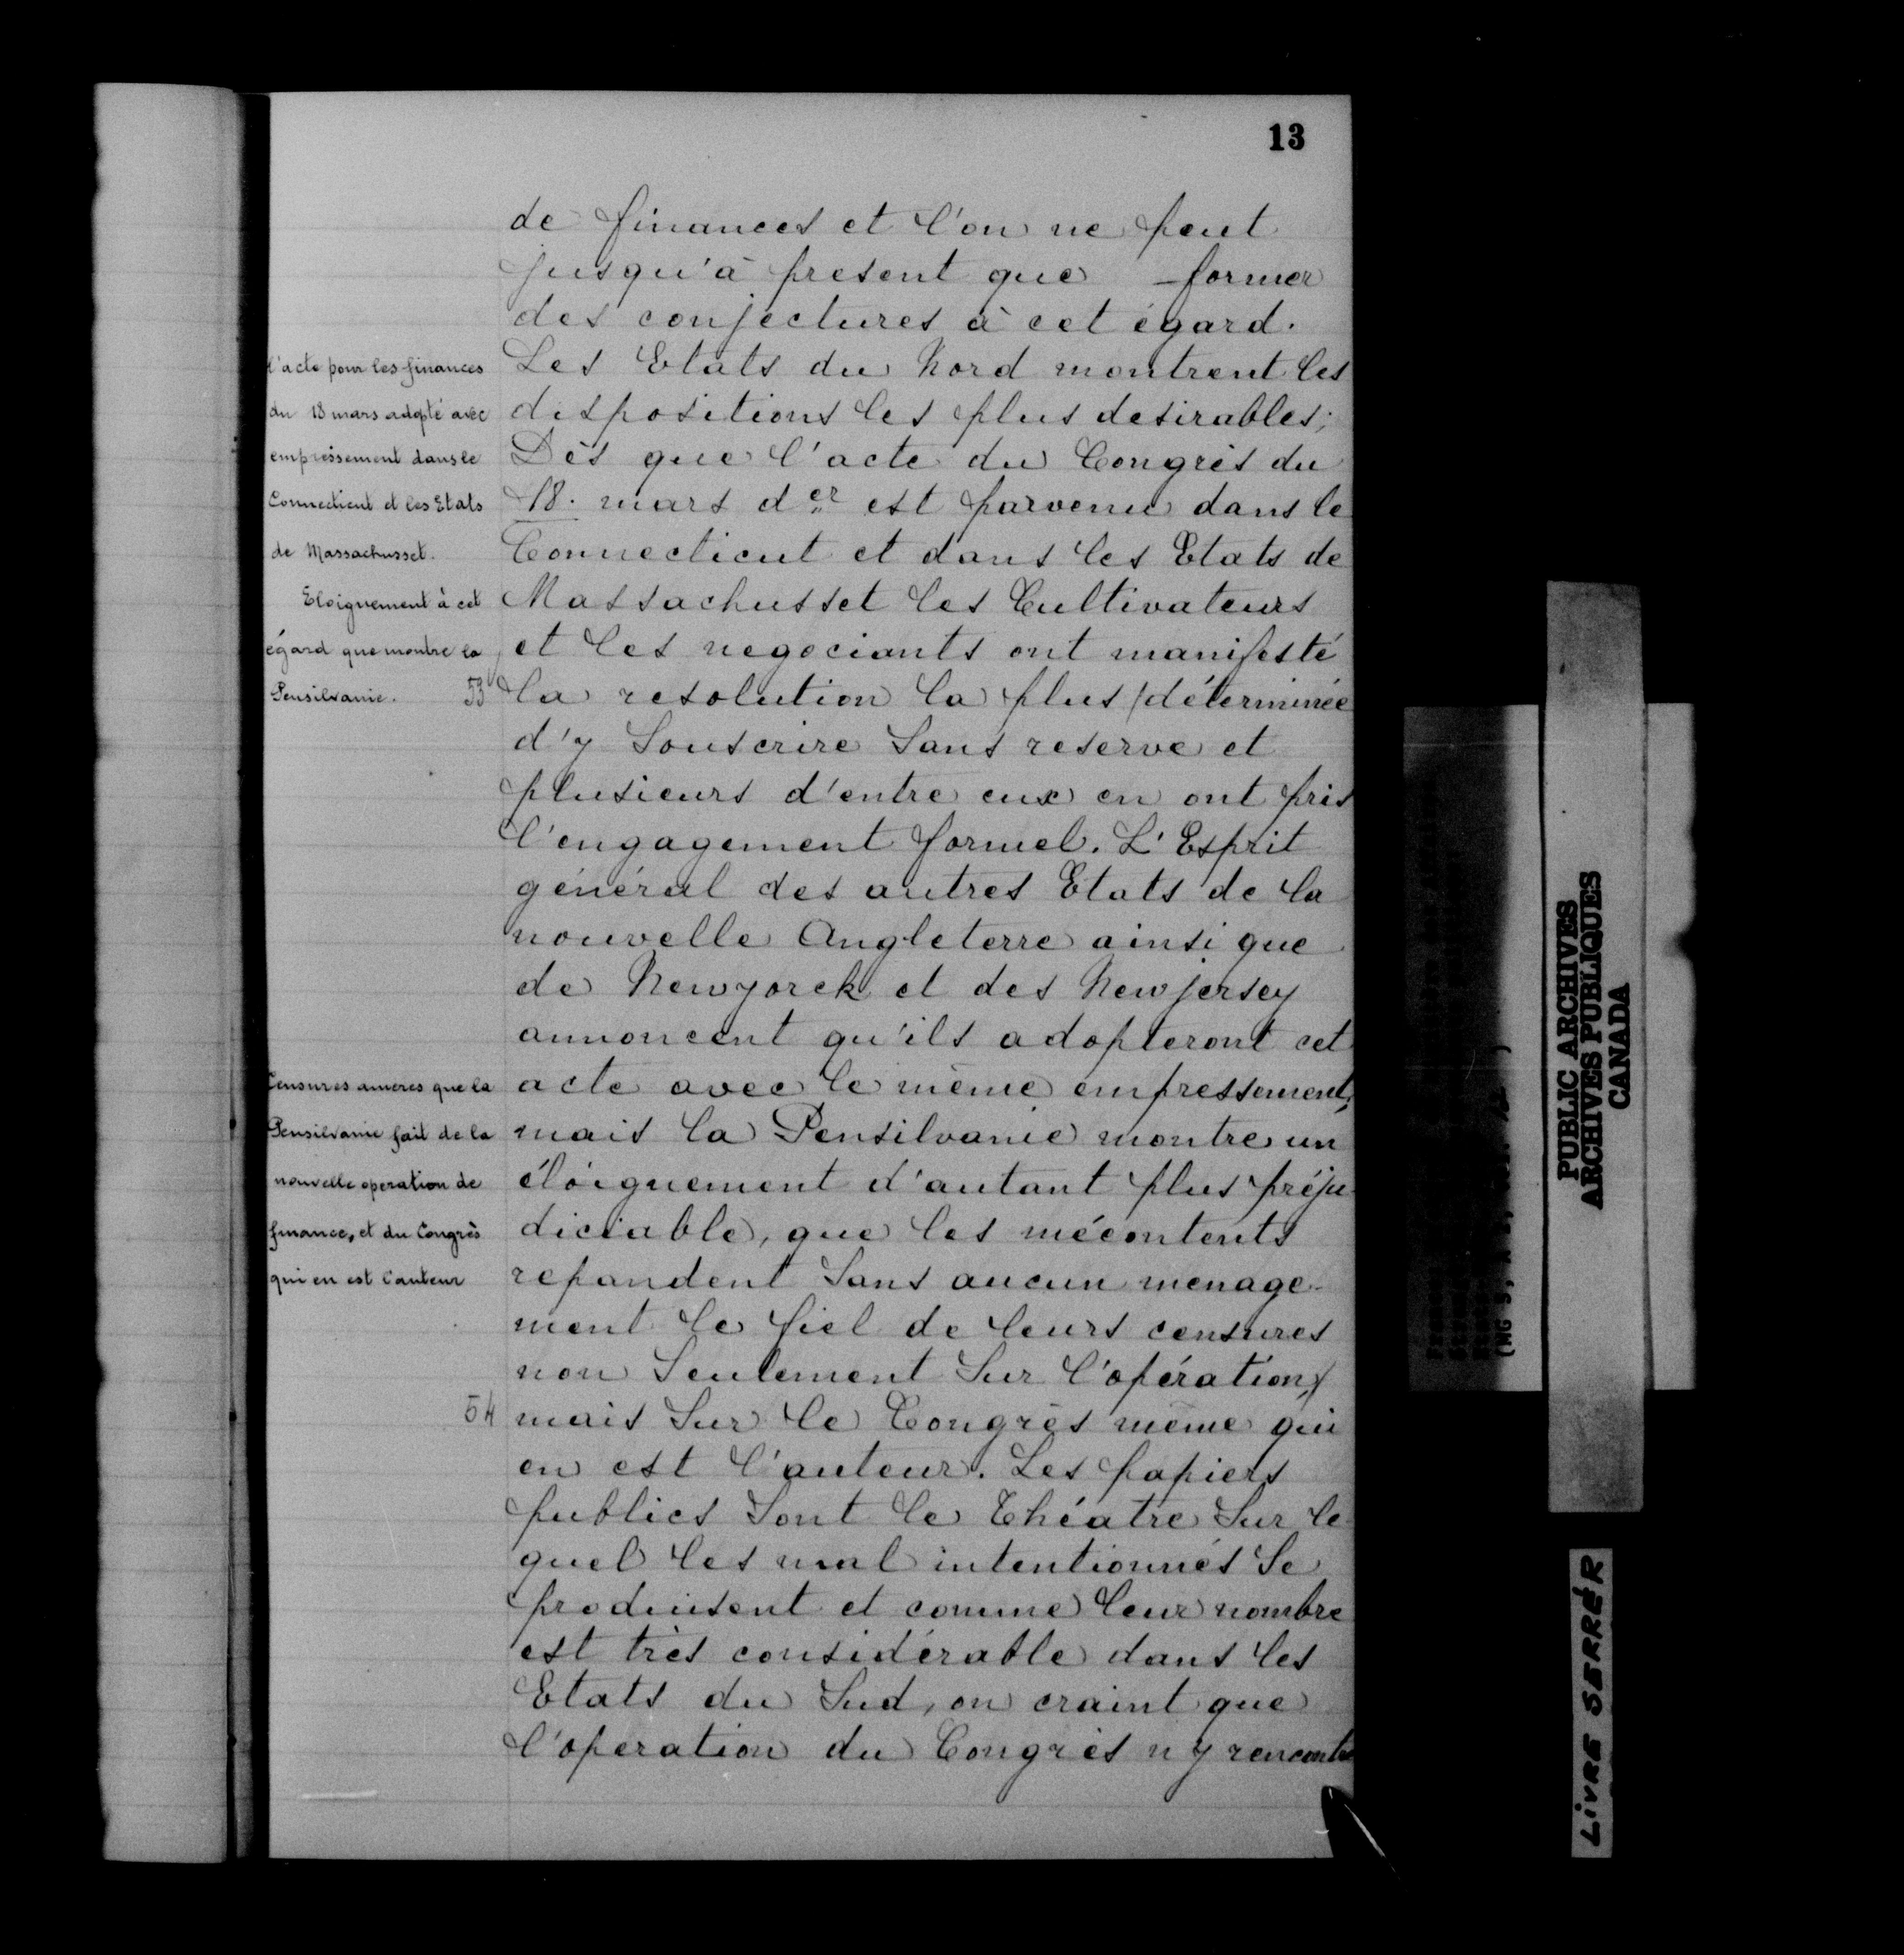 13
de finances et l'on ne peut
jusqu'à present que former
des conjectures à cet égard.
Les Etats du Nord montrent les
dispositions les plus desirables;
Dès que l'acte du Congrès du
18. mars der est parvenu dans le
Connecticut et dans les Etats de
Massachusset les Cultivateurs
et les negociants ont manifesté
la resolution la plus /déterminée
d'y Souscrire Sans reserve et
plusieurs d'entre eux en ont pris
l'engagement formel. L'Esprit
général des autres Etats de la
nouvelle Angleterre ainsi que
de Newyorck et des Newjersey
annoncent qu'ils adopteront cet
acte avec le même empressement;
mais la Pensilvanie montre un
éloignement d'autant plus préju-
diciable, que les mécontents
repandent Sans aucun menage-
ment le fiel de leurs censures
non Seulement Sur l'opération,/
mais Sur le Congrès même qui
en est l'auteur. Les papiers
publics Sont le Théatre Sur le-
quel les mal intentionnés Se
produisent et comme leur nombre
est très considérable dans les
Etats du Sud, on craint que
l'operation du Congrès n'y rencontre
l'acte pour les finances
du 18 mars adopté avec
empressement dans le
Connecticut et les Etats
de Massachusset.
Eloignement à cet
égard que montre la
Pensilvanie.
53
Censures ameres que la
Pensilvanie fait de la
nouvelle operation de
finance, et du Congrès
qui en est l'auteur
54
PUBLIC ARCHIVES
ARCHIVES PUBLIQUES
CANADA
LIVRE SERRÉR